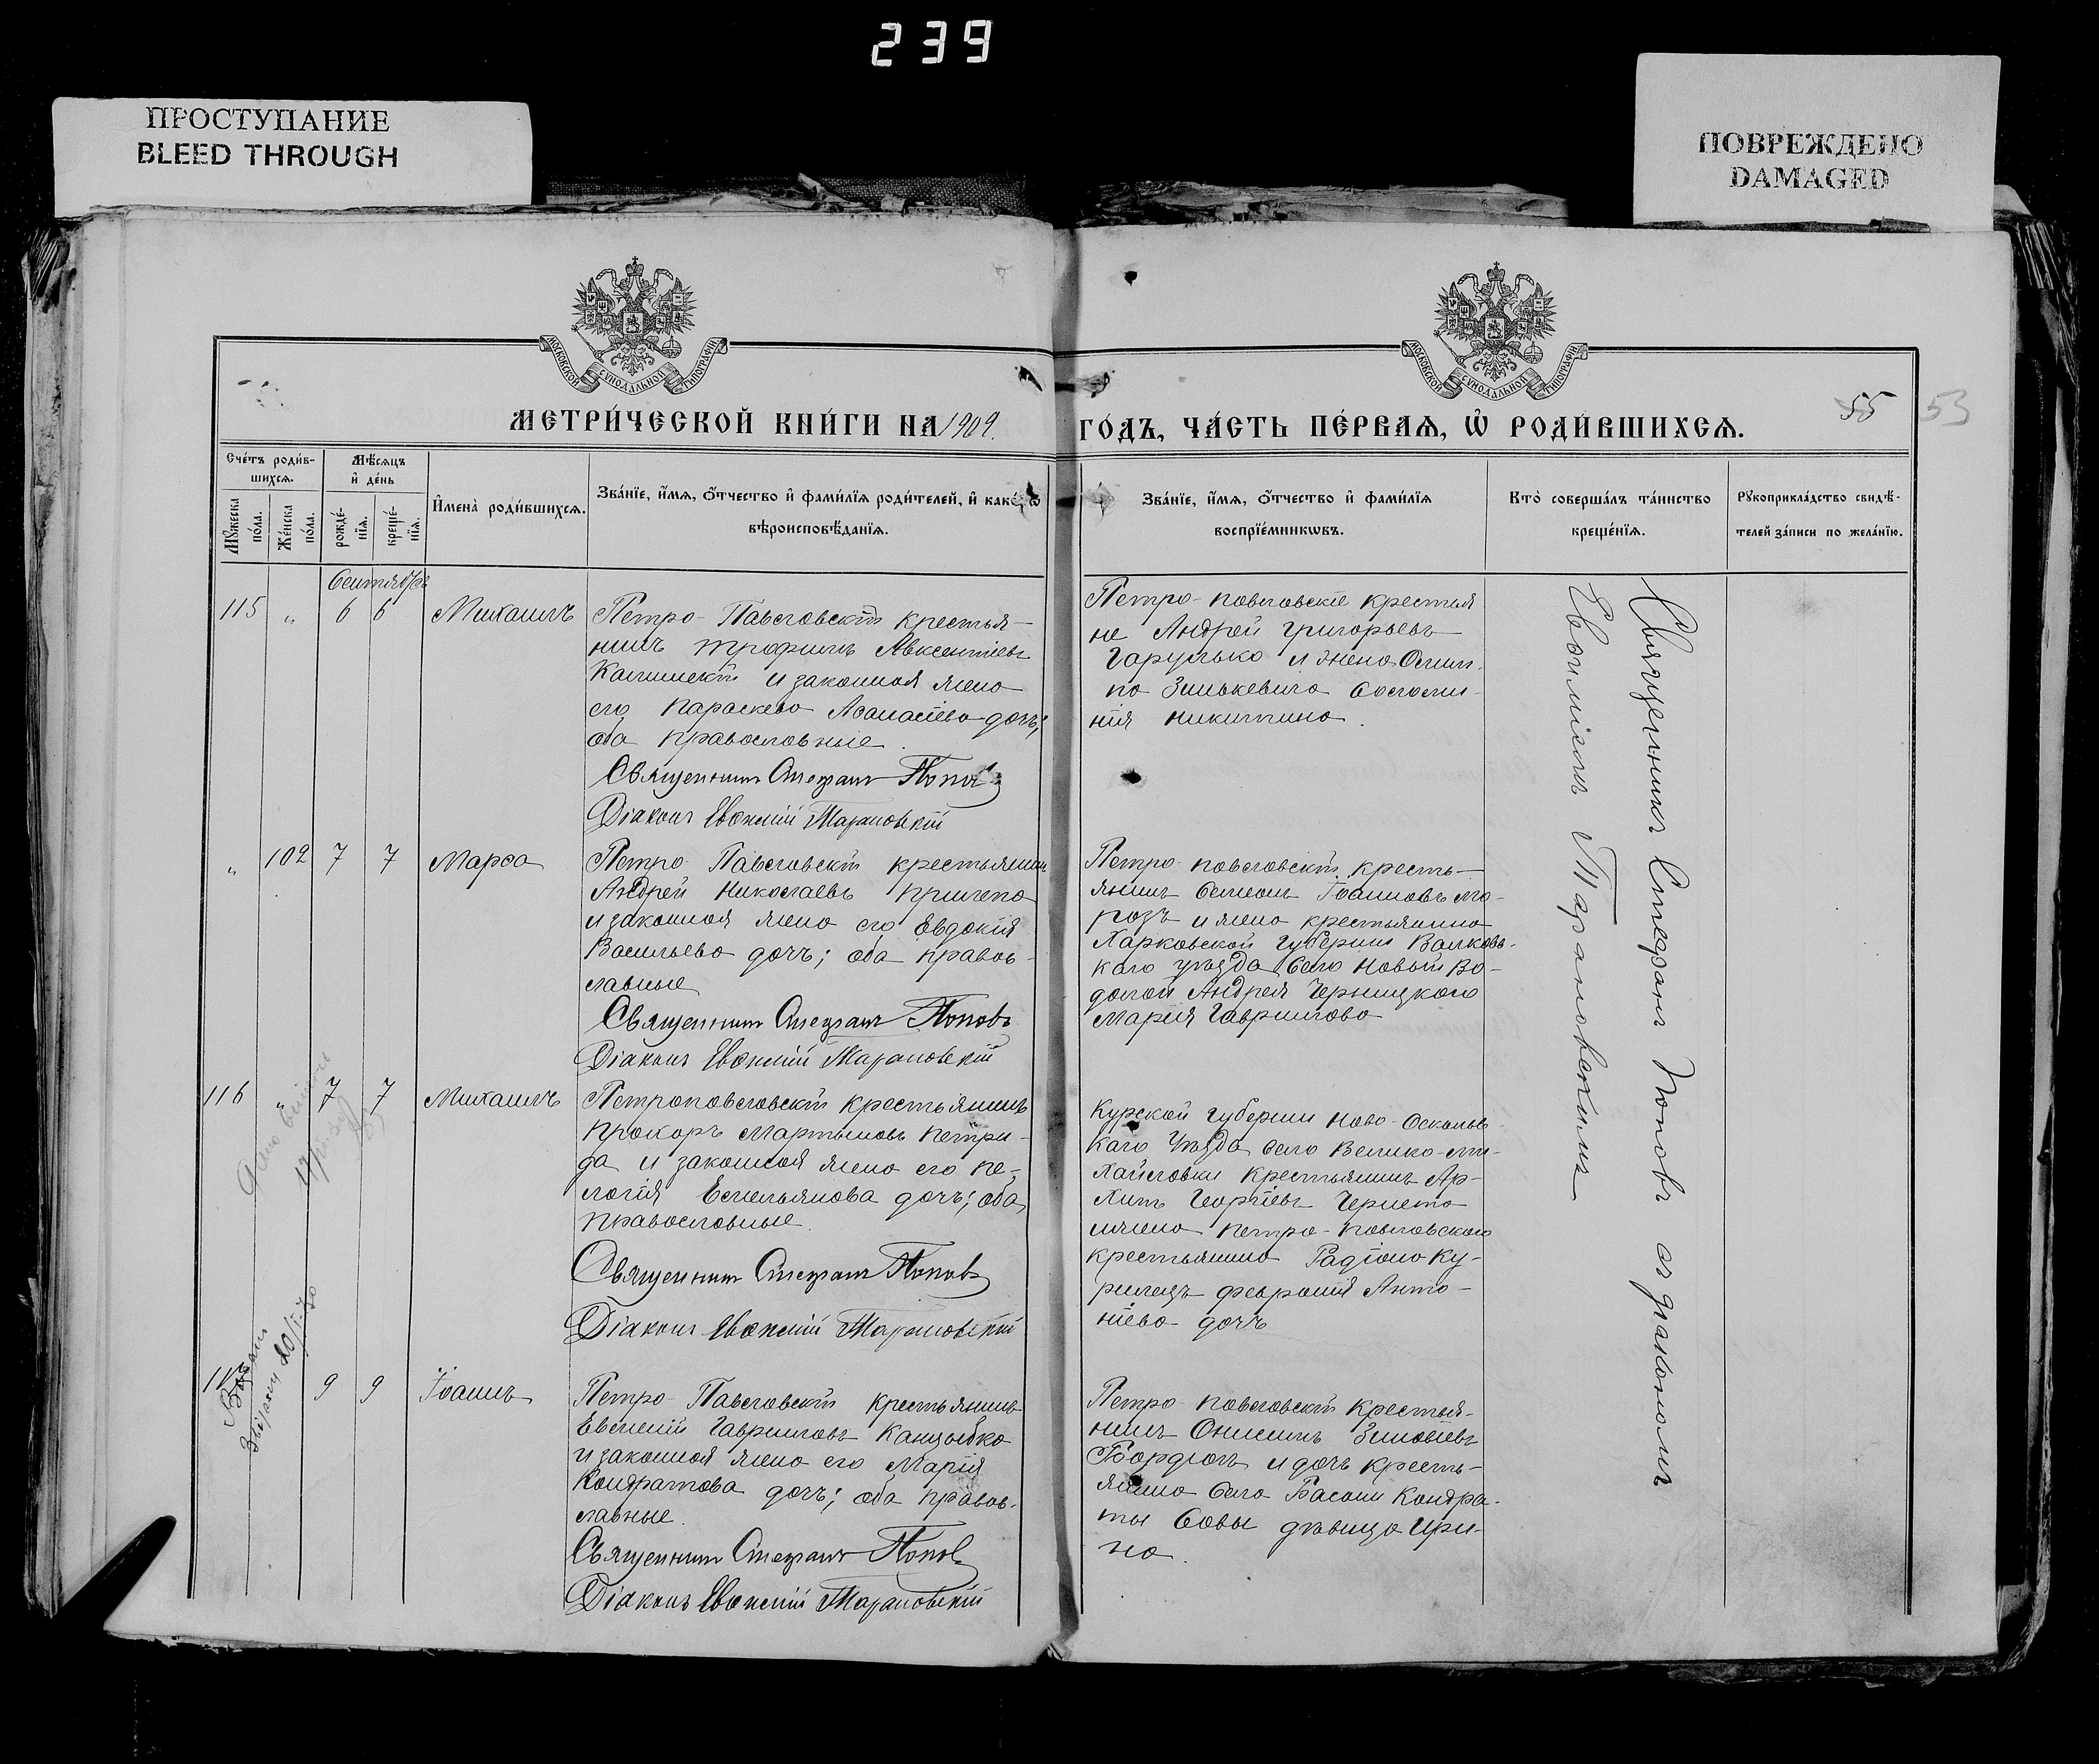 239
ПРОСТУПАНИЕ
BLEED THROUGH
ПОВРЕЖДЕНО
DAMAGED
МОСКОВСКОЙ СУНОДАЛЬНОЙ ТИПОГРАФІИ
МОСКОВСКОЙ СУНОДАЛЬНОЙ ТИПОГРАФІИ
МЕТРИ́ЧЕСКОЙ КНИ́ГИ НА 1909.
ГО́ДЪ, ЧА́СТЬ ПЕ́РВАѦ, Ѡ҆ РОДИ́ВШИХСѦ.
55
53
Сче́тъ роди́в-
шихсѧ.
Мѣ́сѧцъ
и҆ де́нь
Мꙋ́жеска
по́ла.
Же́нска
по́ла.
рожде́-
нїѧ.
креще́-
нїѧ.
И҆мена̀ роди́вшихсѧ.
Зва́нїе, и҆́мѧ, ѻ҆́тчество и҆ фами́лїѧ роди́телей, и҆ како́гѡ
вѣроисповѣ́данїѧ.
Зва́нїе, и҆́мѧ, ѻ҆́тчество и҆ фами́лїѧ
воспрїе́мникѡвъ.
Кто̀ соверша́лъ та́инство
креще́нїѧ.
Рꙋкоприкла́дство свидѣ́-
телей за́писи по жела́нїю.
Сентябрь
115 „ 6 6 Михаилъ
Петро-Павловскій крестья-
нинъ Трофимъ Авксентіевъ
и законная жена
его Параскева Аѳанасіева дочь;
оба православные.
Священникъ Стефанъ Поповъ
Діаконъ Евѳимій Тарановскій
Петро-Павловскіе крестья
не Андрей Григорьевъ
Гарулько и жена
Зинькевича
Никитина.
„ 102 7 7 Марѳа
Петро-Павловскій крестьянинъ
Андрей Николаевъ Прилепа
и законная жена его Евдокія
Васильева дочь; оба правос-
лавные
Священникъ Стефанъ Поповъ
Діаконъ Евѳимій Тарановскій
Петро-Павловскій кресть-
янинъ Семенъ Іоанновъ Мо-
розъ и жена крестьянина
Харковской губерніи Валковс-
каго уѣзда село Новый Во-
долой Андрея Черницкаго
Марія Гаврилова
116 „ 7 7 Михаилъ
Петропавловскій крестьянинъ
Прохоръ Мартыновъ Петри-
да и законная жена его Пе-
лагія Емельянова дочь; оба
православные.
Священникъ Стефанъ Поповъ
Діаконъ Евѳимій Тарановскій
Курской губерніи Ново-Оскольс-
каго уѣзда село Велико-Ми-
хайловки крестьянинъ Ар-
хипъ Георгіевъ
и жена Петро-Павловскаго
крестьянина Радіона Ку-
рилецъ Февронія Анто-
ніева дочь
117 9 9 Іоаннъ
Петро-Павловскій крестьянинъ
Евгеній Гавриловъ Канцыбко
и законная жена его Марія
Кондратова дочь; оба правос-
лавные.
Священникъ Стефанъ Поповъ
Діаконъ Евѳимій Тарановскій
Петро-Павловскій крестья-
нинъ Онисимъ Зиновіевъ
Бордюгъ и дочь кресть-
янина село Басани Кондра-
ты Совы дѣвица Ири-
на.
Священникъ Стефанъ Поповъ съ діакономъ
Евѳиміемъ Тарановскимъ